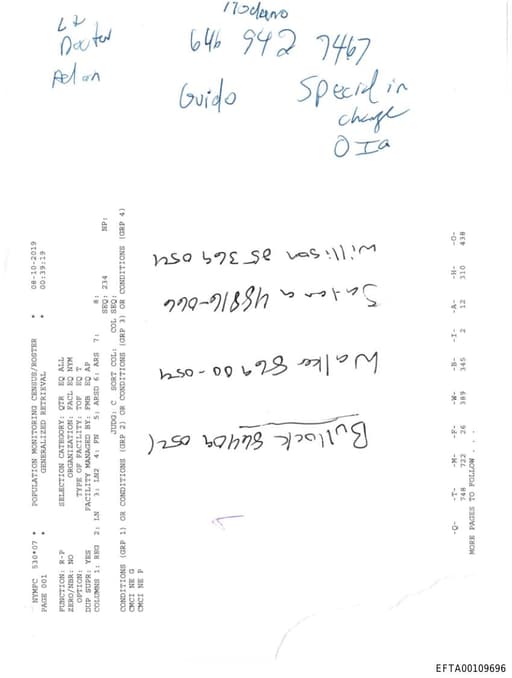 LT
Doctor
Adlan
646 942 7467
Guido
Special in
charge
OIa
NYMPC 530*07 * POPULATION MONITORING CENSUS/ROSTER * 08-10-2019
PAGE 001 * GENERALIZED RETRIEVAL * 00:39:19
FUNCTION: R-P SELECTION CATEGORY: QTR EQ ALL
ZERO/NBR: NO ORGANIZATION: FACL EQ NYM
OPTION: TYPE OF FACILITY: TOF EQ T
DUP SUPR: YES FACILITY MANAGED BY: FMB EQ AP
COLUMNS 1: REG 2: LN 3: LN2 4: FN 5: ARSD 6: ARS 7: 8: NP:
JUDG: C SORT COL: COL SEQ: SEQ: 234
CONDITIONS (GRP 1) OR CONDITIONS (GRP 2) OR CONDITIONS (GRP 3) OR CONDITIONS (GRP 4)
CMCI NE G
CMCI NE P
Bullock
Walker 86900-054
48816-066
Willison 35369 054
-Q- -T- -M- -F- -W- -B- -I- -A- -H- -O-
748 722 26 389 345 2 12 310 438
MORE PAGES TO FOLLOW . . .
EFTA00109696